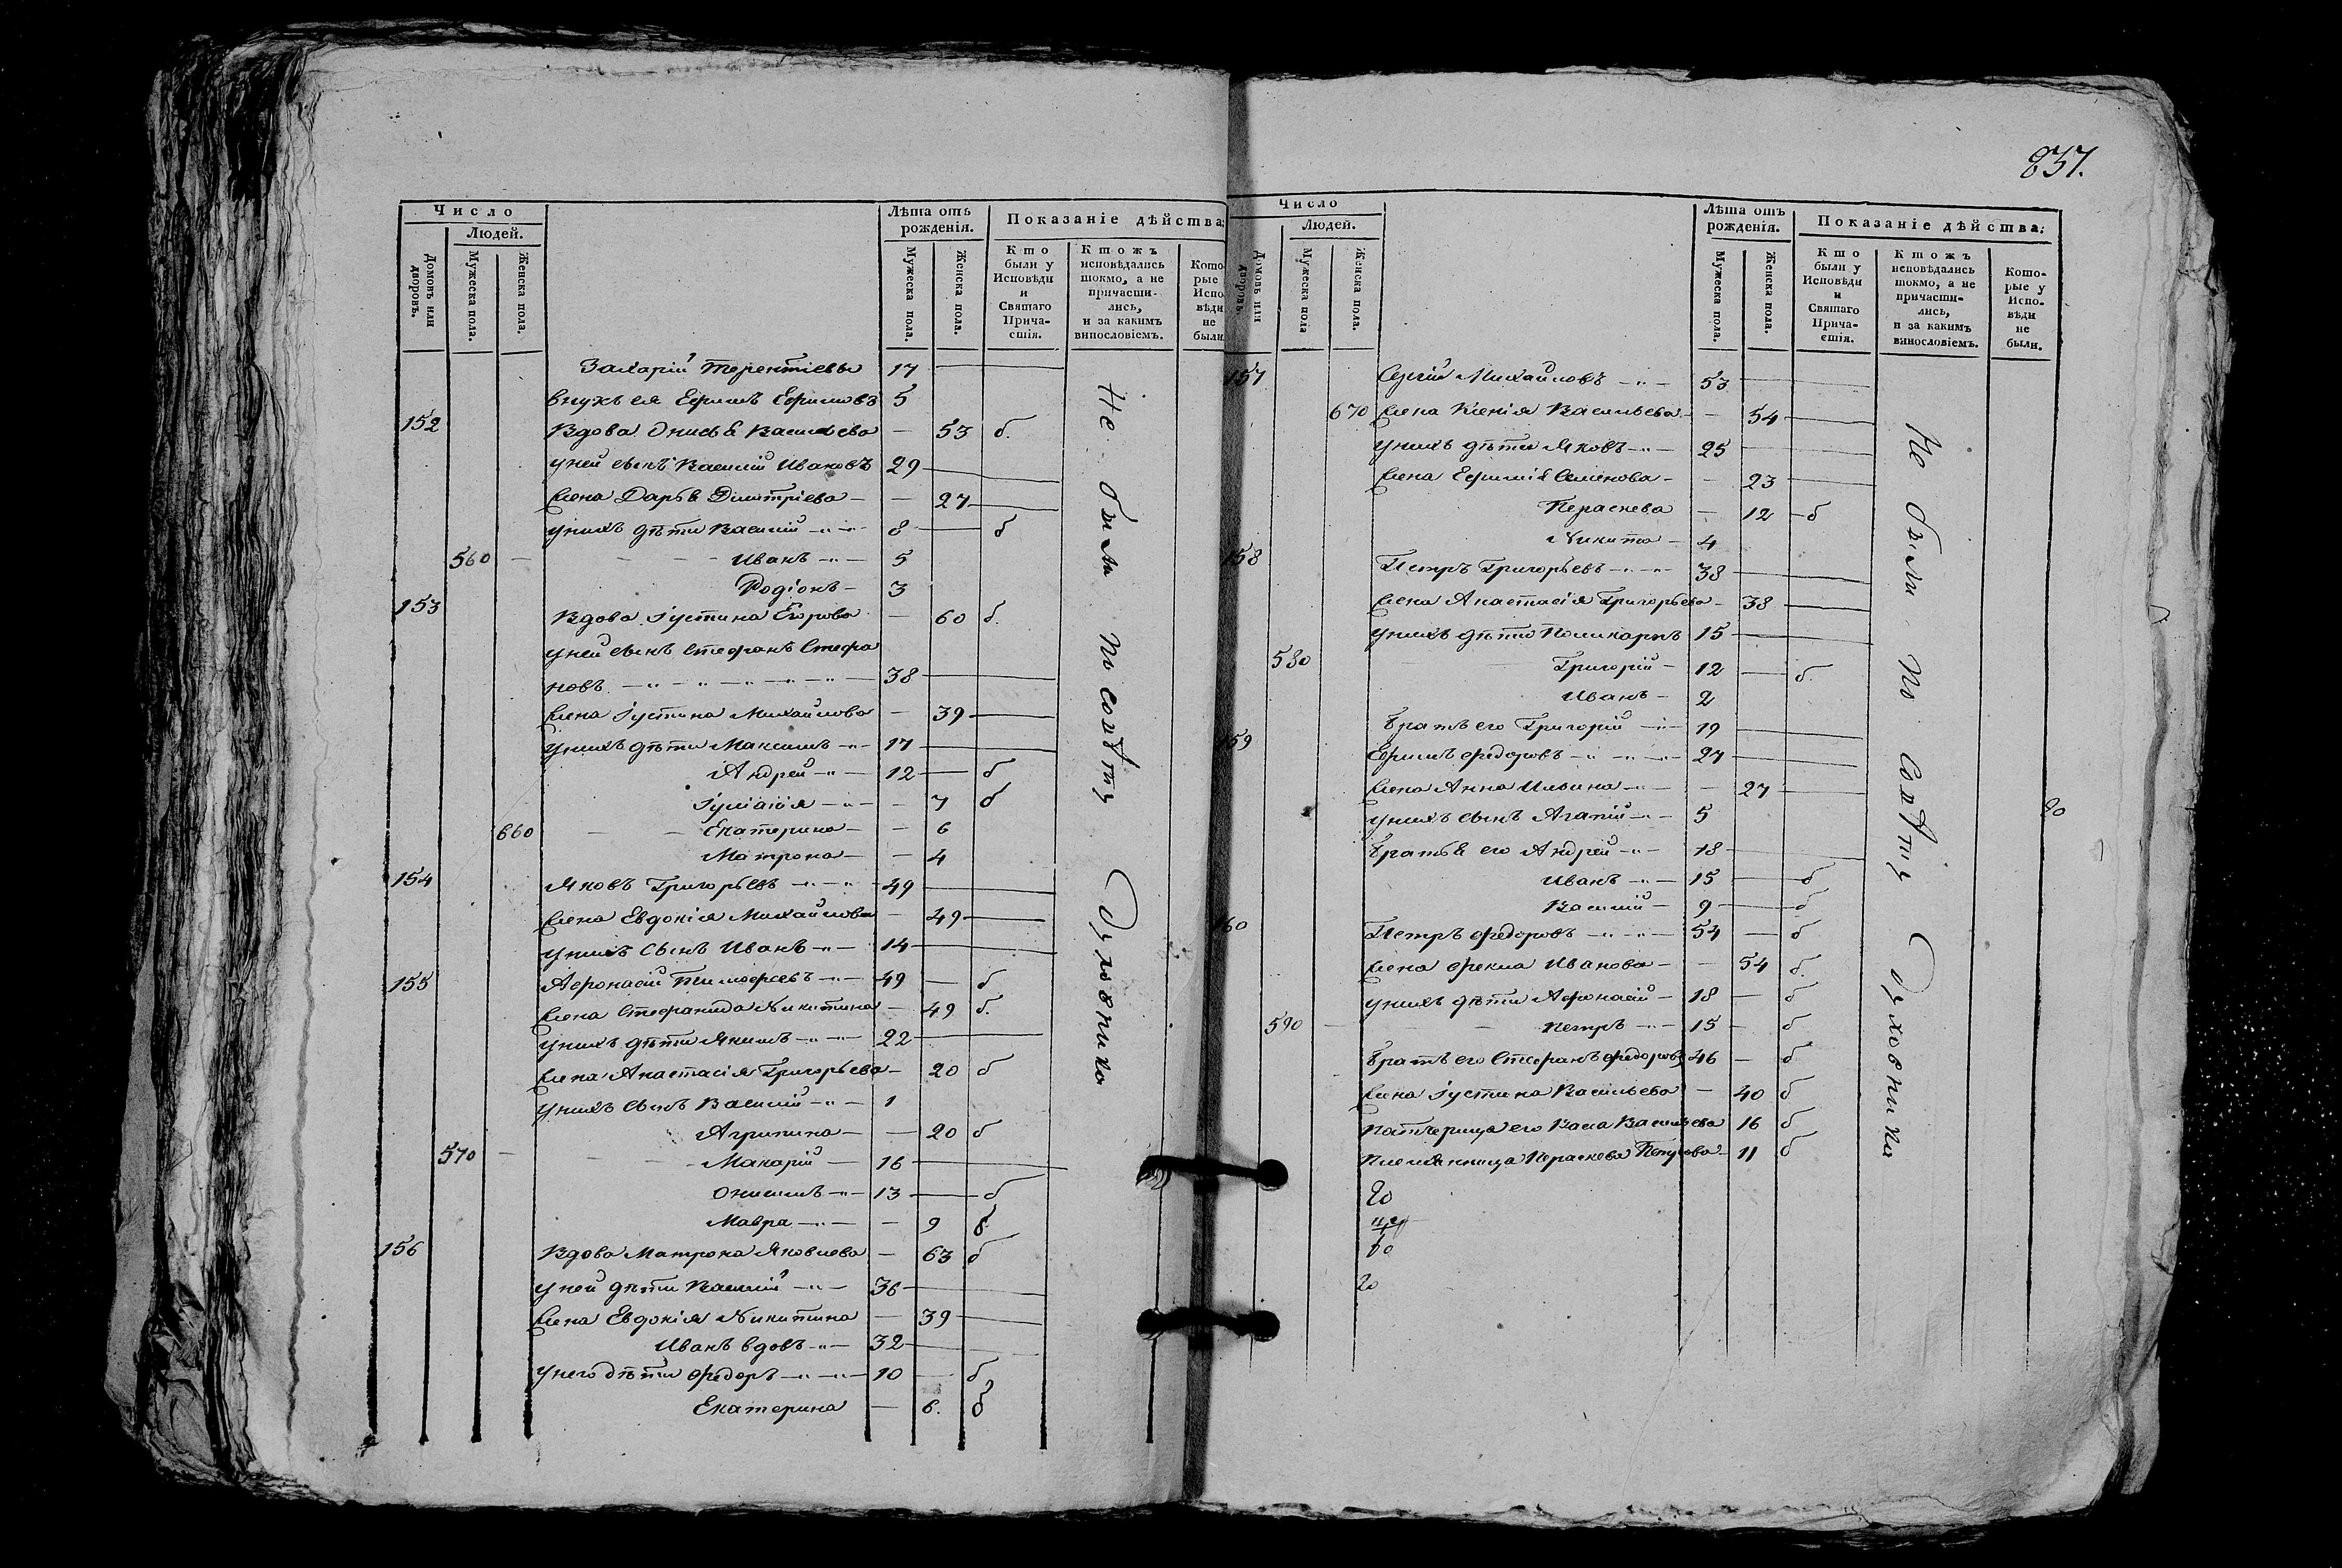 837.
Число
Людей.
Домовъ или дворовъ.
Мужеска пола.
Женска пола.
Лѣта отъ рожденія.
Мужеска пола.
Женска пола.
Показаніе дѣйства:
Кто были у Исповѣди и Святаго Прича-стія.
Ктожъ исповѣдались токмо, а не причасти-лись, и за какимъ винословіемъ.
Кото-рые Испо-вѣди не были
Захарій Терентіевъ 17
внукъ ея Ефимъ Ефимовъ 5
152 Вдова Онисья Васильева — 53 б.
у ней сынъ Василій Ивановъ 29
жена Дарья Димитріева — 27
у нихъ дѣти Василій 8 б
560 Иванъ 5
Родіонъ 3
153 Вдова Іустина Егорова — 60 б.
у ней сынъ Стефанъ Стефа
новъ 38
жена Іустина Михайлова — 39
у нихъ дѣти Максимъ 17
Андрей 12 б
Іуліанія — 7 б
660 Екатерина — 6
Матрона — 4
154 Яковъ Григорьевъ 49
жена Евдокія Михайлова — 49
у нихъ сынъ Иванъ 14
155 Афонасій Тимофеевъ 49 — б
жена Стефанида Никитина — 49 б.
у нихъ дѣти Якимъ 22
жена Анастасія Григорьева — 20 б
у нихъ сынъ Василій 1
Агрипина — 20 б
570 Макарій 16
Онисимъ 13 б
Мавра — 9 б
156 Вдова Матрона Яковлева — 63 б
у ней дѣти Василій 36
жена Евдокія Никитина — 39
Иванъ вдовъ 32
у него дѣти Федоръ 10 б
Екатерина — 6. б
Не были по совѣту Духовника
Число
Людей.
Домовъ или дворовъ.
Мужеска пола
Женска пола.
Лѣта отъ рожденія.
Мужеска пола.
Женска пола.
Показаніе дѣйства:
Кто были у Исповѣди и Святаго Прича-стія.
Ктожъ исповѣдались токмо, а не причасти-лись, и за какимъ винословіемъ.
Кото-рые у Испо-вѣди не были.
157 Сергій Михайловъ 53
670 жена Ксенія Васильева — 54
у нихъ дѣти Яковъ 25
жена Ефимія Семенова — 23
Пераскева — 12 б
Никита 4
158 Петръ Григорьевъ 38
жена Анастасія Григорьева — 38
у нихъ дѣти Поликарпъ 15
580 Григорій 12 б.
Иванъ 2
братъ его Григорій 19
159 Ефимъ Федоровъ 27
жена Анна Ильина — 27
у нихъ сынъ Агапій 5
братья его Андрей 18
Иванъ 15 б
Василій 9 б
160 Петръ Федоровъ 54 — б
жена Фекла Иванова — 54 б.
у нихъ дѣти Афонасій 18 — б
590 Петръ 15 — б
братъ его Стефанъ Федоровъ 46 — б
жена Іустина Васильева — 40 б
патчерица его Васа Васильева 16 б
племянница Пераскева Петрова 11 б
Не были по совѣту Духовника